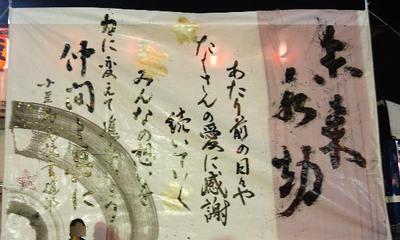 未来永劫
あたり前の日々や
たくさんの愛に感謝
続いていく
みんなの想いを
に変えて進
仲間と共に